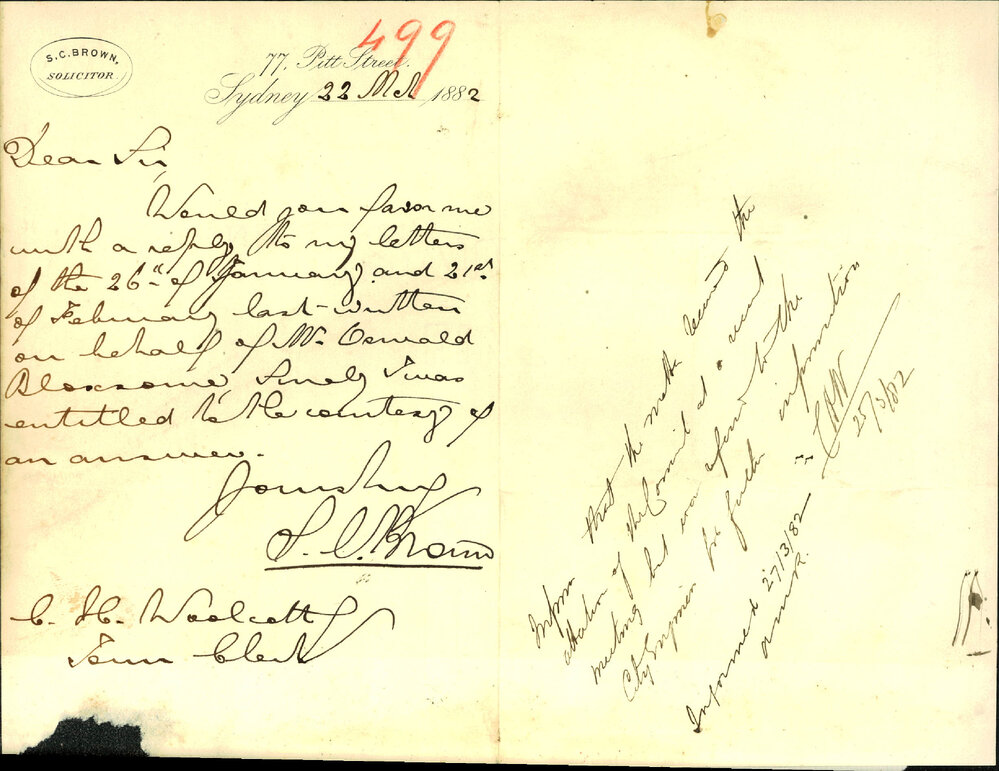 499
S.C. BROWN.
SOLICITOR.
77, Pitt Street.
Sydney 22 Mch 1882
Dear Sir,
Would you favor me
with a reply to my letters
of the 26th of January and 21st
of February last written
on behalf of Mr. Oswald
Bloxsome, Surely I was
entitled to the courtesy of
an answer.
Yours truly
S. C. Brown
C. H. Woolcott
Town Clerk
Inform that the matter received the
attention of the Council at a recent
meeting but was referred to the
City Engineer for further information
CHW
25/3/82
Informed 27/3/82